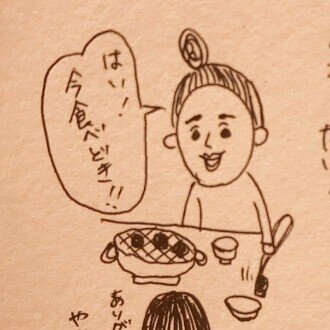 はい！
今食べどき！！
ありが
や